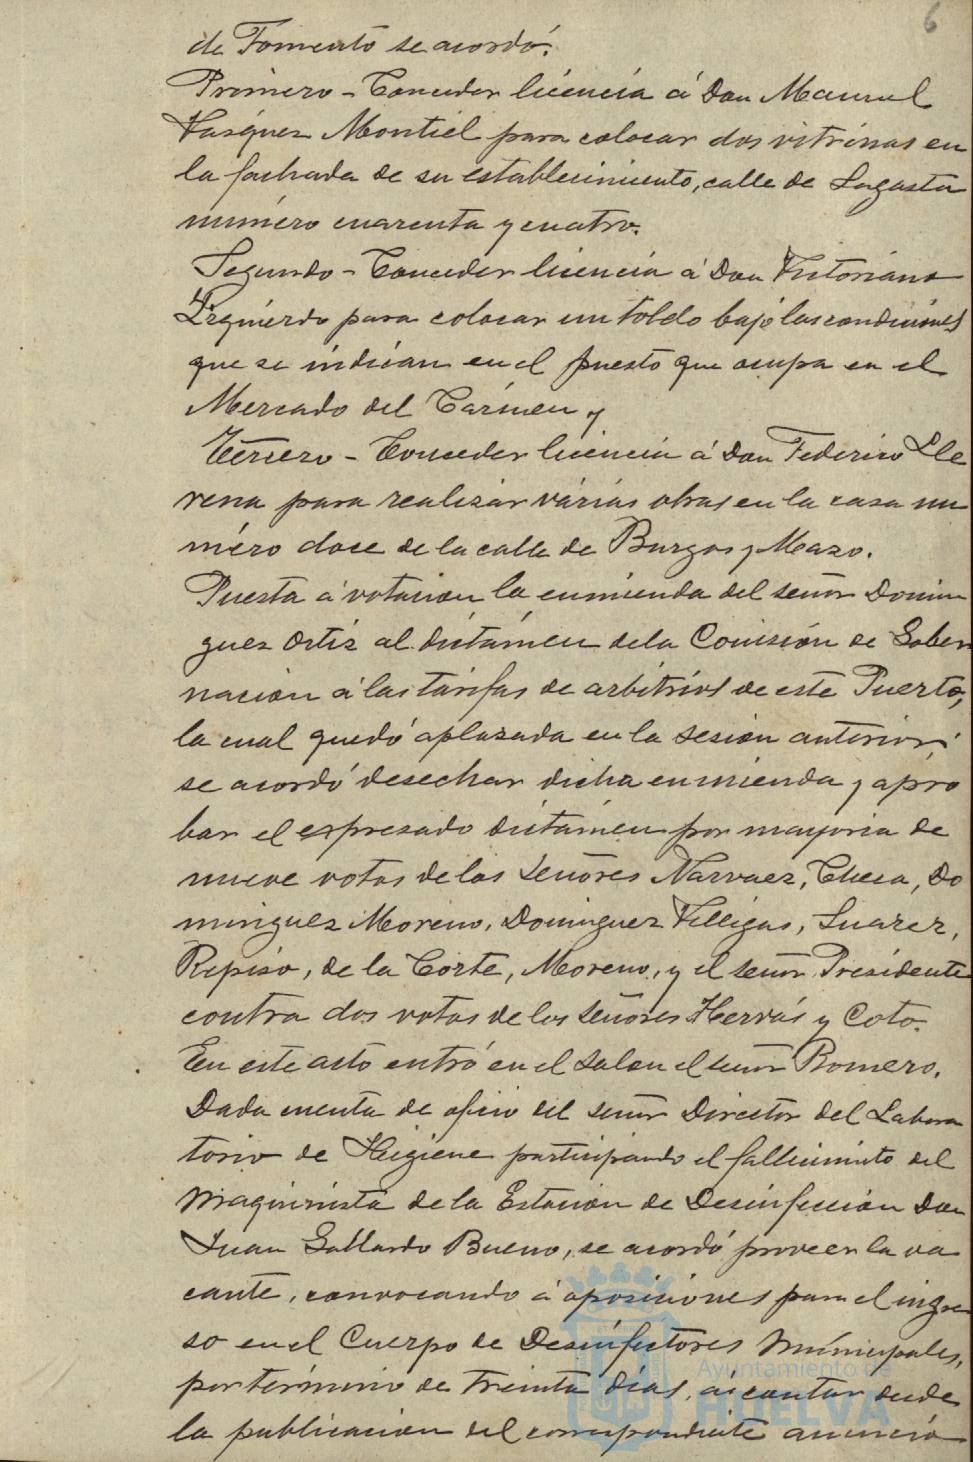 6
de Fomento se acordó:
Primero - Conceder licencia á Don Manuel
Vasquez Montiel para colocar dos vitrinas en
la fachada de su establecimiento, calle de Sagasta
número cuarenta y cuatro.
Segundo - Conceder licencia á Don Victoriano
Izquierdo para colocar un toldo bajo las condiciones
que se indican en el puesto que ocupa en el
Mercado del Cármen y
Tercero - Conceder licencia á Don Federico Lle
rena para realizar várias obras en la casa nu
méro doce de la calle de Burgos y Mazo.
Puesta á votacion la enmienda del señor Domin
guez Ortiz al dictámen de la Comisión de Gober
nacion á las tarifas de arbitrios de este Puerto,
la cual quedó aplazada en la sesion anterior;
se acordó desechar dicha enmienda y apro
bar el espresado dictámen por mayoria de
nueve votos de los Señores Narvaez, Checa, Do
minguez Moreno, Dominguez Villegas, Suarez,
Repiso, de la Corte, Moreno, y el señor Presidente
contra dos votos de los señores Hervás y Coto.
En este acto entró en el salon el señor Romero.
Dada cuenta de oficio del señor Director del Labora
torio de Higiene participando el fallecimiento del
maquinista de la Estacion de Desinfeccion Don
Juan Gallardo Bueno, se acordó proveer la va
cante, convocando á oposiciones para el ingre
so en el Cuerpo de Desinfectores Municipales,
por término de treinta dias, á contar desde
la publicacion del correspondiente anuncio
Ayuntamiento de
HUELVA